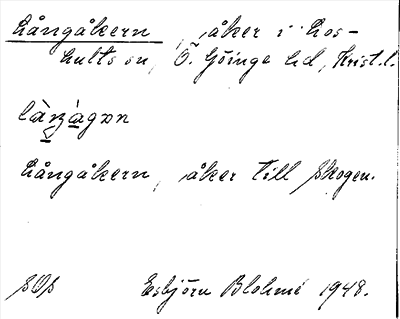 Långåkern, åker i Los-
hults sn, Ö. Göinge hd, Krist. l.
Långåkern, åker till Skogen.
Esbjörn Blohmé 1948.